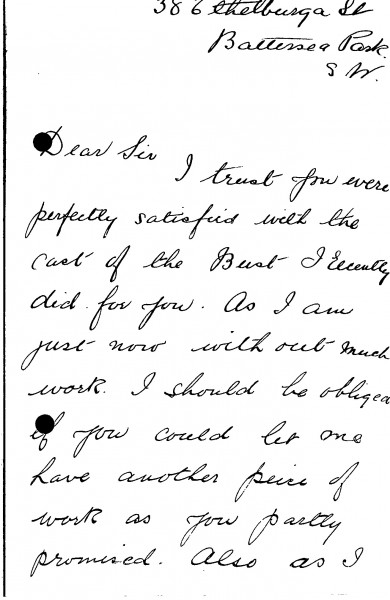 38 Ethelburga St
Battersea Park.
S W.
Dear Sir
I trust you were
perfectly satisfied with the
cast of the Bust I recently
did for you. As I am
just now with out much
work. I should be obliged
if you could let me
have another peice of
work as you partly
promised. Also as I